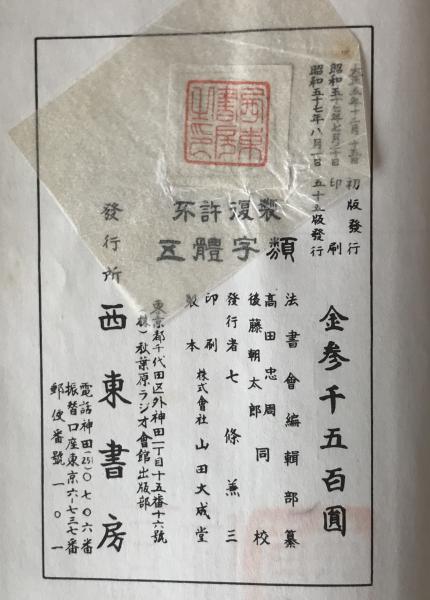 大正五年十二月十五日 初版發行
昭和五十七年七月二十日 印刷
昭和五十七年八月一日 五十五版發行
西東書房之印
不許復製
五體字類
金参千五百圓
法書會編輯部纂
高田忠周
後藤朝太郎
同校
發行者 七條兼三
印刷
製本
株式會社 山田大成堂
東京都千代田区外神田一丁目十五番十六號
(株)秋葉原ラジオ會館出版部
發行所 西東書房
電話神田(251)〇七〇六番
振替口座東京六-七三七番
郵便番號一〇一